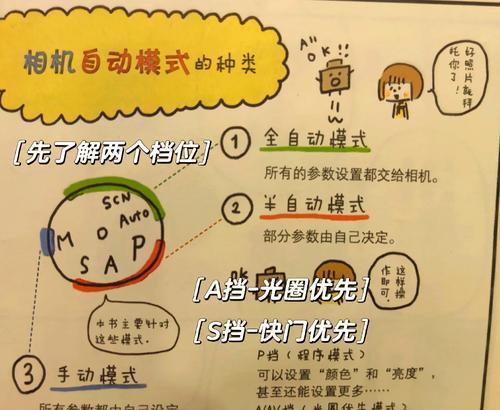 相机自动模式的种类
All
OK!!
好照片就拜
托你了!
[先了解两个档位]
① 全自动模式
所有的参数设置都交给相机。
SCN
Auto
M O P
S A
② 半自动模式
部分参数由自己决定。
OK
这样操
作即可。
[A挡-光圈优先]
[S挡-快门优先]
本书主要针对
这些模式。
P挡(程序模式)
可以设置“颜色”和“亮度”,
甚至还能设置更多……
③ 手动模式
所有参数都由自己设定
A/AV挡(光圈优先模式)